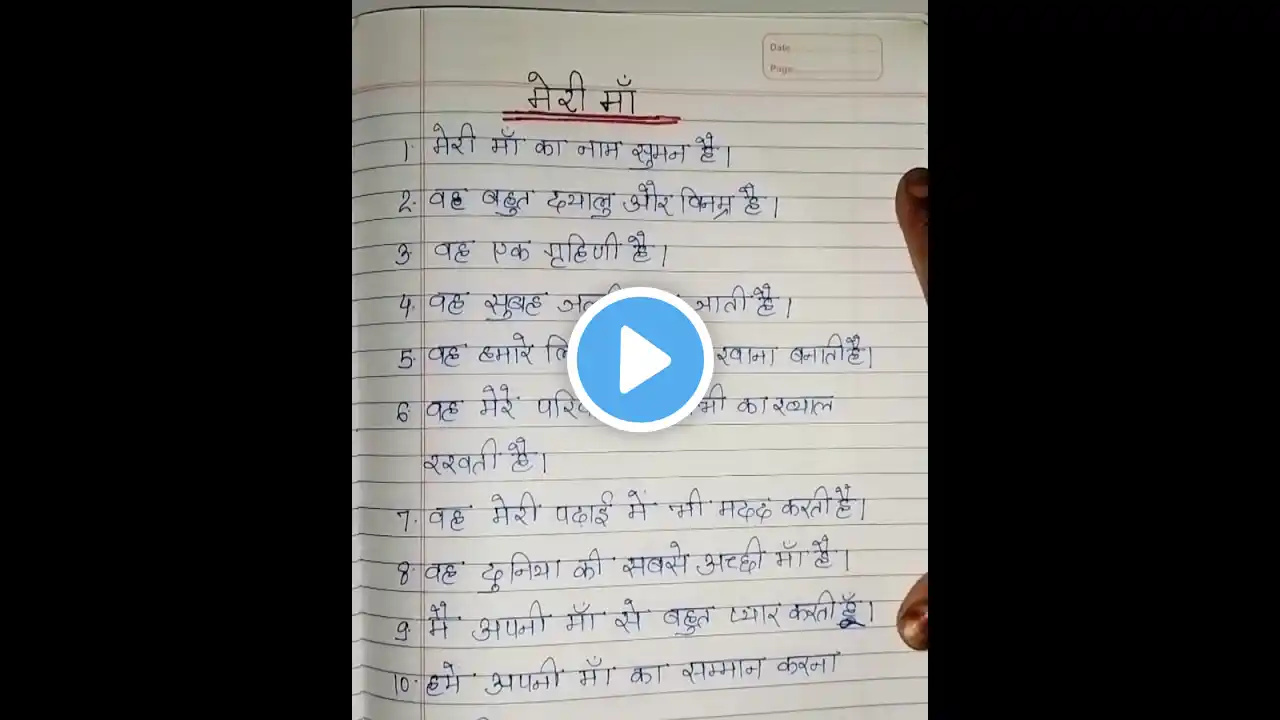 Date
Page
मेरी माँ
1. मेरी माँ का नाम सुमन है।
2. वह बहुत दयालु और विनम्र है।
3. वह एक गृहिणी है।
4. वह सुबह जाती है।
5. वह हमारे खाना बनाती है।
6. वह मेरे का ख्याल
रखती है।
7. वह मेरी पढ़ाई में भी मदद करती है।
8. वह दुनिया की सबसे अच्छी माँ है।
9. मैं अपनी माँ से बहुत प्यार करती हूँ।
10. हमें अपनी माँ का सम्मान करना